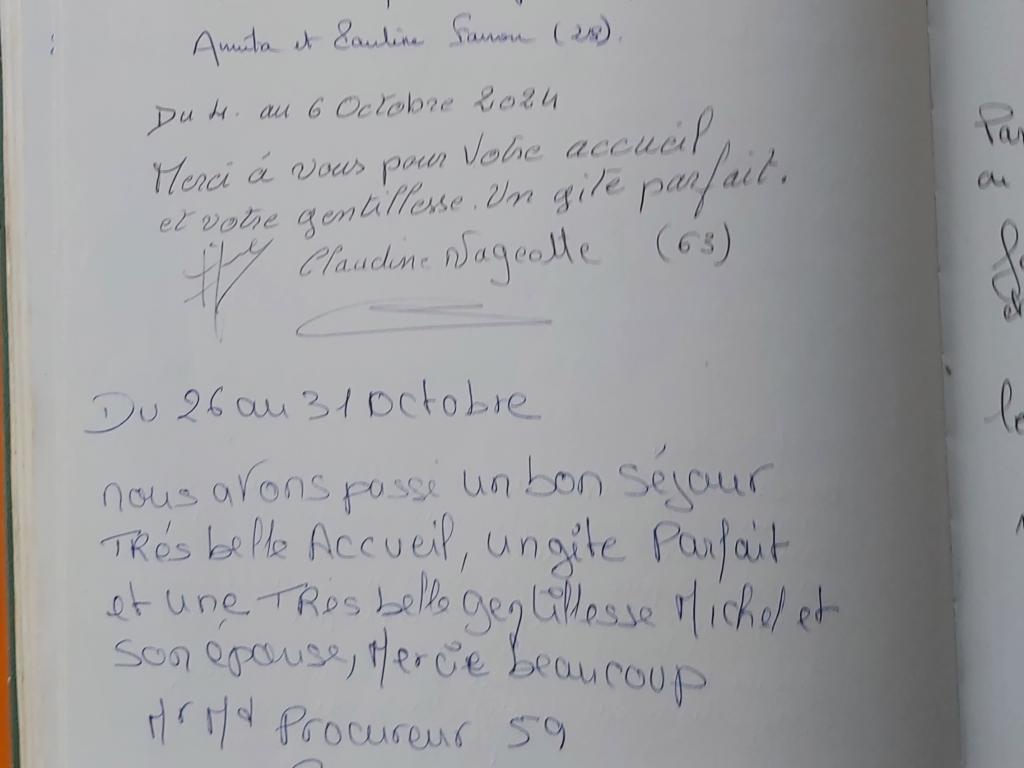 et Pauline (28).
Du 4. au 6 Octobre 2024
Merci á vous pour Votre accueil
et votre gentillesse. Un gite parfait.
Claudine Nageotte (63)
Du 26 au 31 Octobre
nous avons passé un bon séjour
TRés belle Accueil, un gîte Parfait
et une TRés belle gentillesse Michel et
son épouse, Mercie beaucoup
Mr Md Procureur 59
Par
ou
le